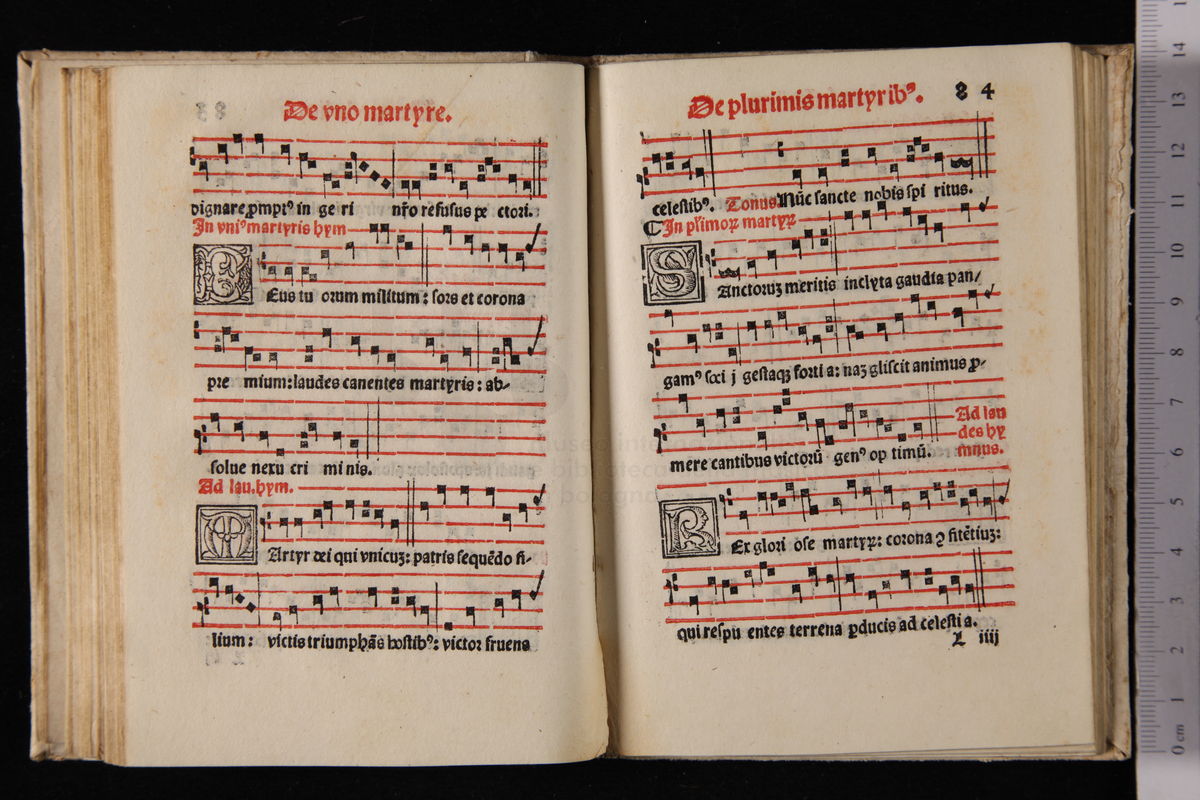 De vno martyre.
dignare p̱mptꝰ in ge ri nr̃o refusus pe ctori.
In vniꝰ martyris hym
Eus tu orum militum: sors et corona
pre mium: laudes canentes martyris: ab-
solue nexu cri mi nis.
Ad lau. hym.
Artyr dei qui vnicuȝ: patris sequẽdo fi-
lium: victis triumphãs hostibꝰ: victor fruens
De plurimis martyribꝰ. 84
celestibꝰ. Tonus Nũc sancte nobis spi ritus.
¶ In pl'imoꝝ martyꝝ
S Anctoruȝ meritis inclyta gaudia pan/
gamꝰ soci j gestaqȝ forti a: naȝ gliscit animus p̱-
mere cantibus victorũ genꝰ op timũ.
Ad lau
des hy
mnus.
R Ex glori ose martyꝝ: corona ꝯ fitẽtiuȝ:
qui respu entes terrena p̱ducis ad celesti a.
L iiij
14
13
12
11
10
9
8
7
6
5
4
3
2
1
0 cm